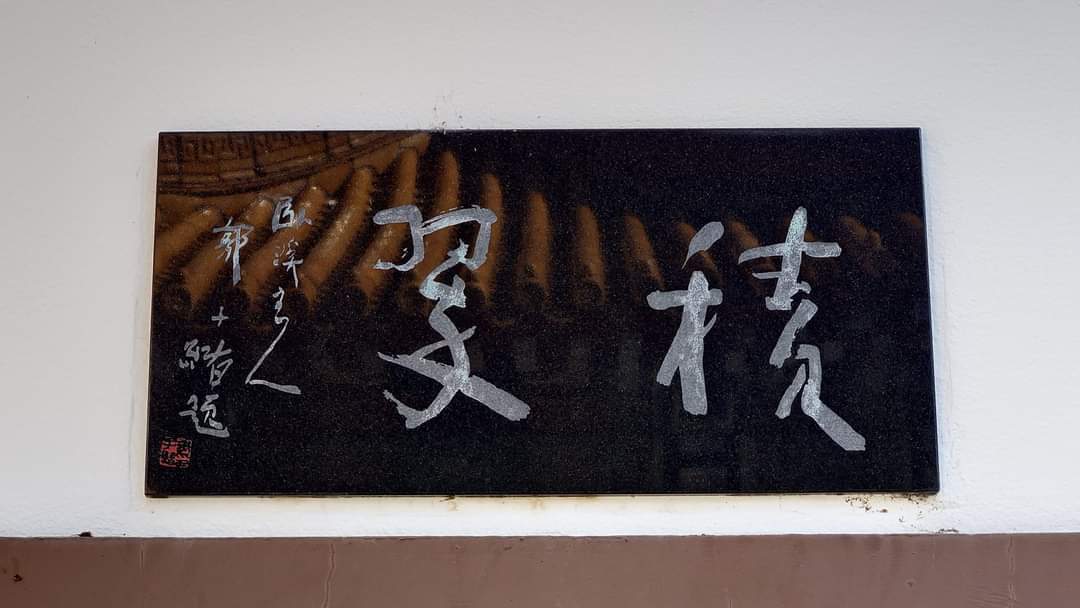 積翠
臥溪主人
郭十題